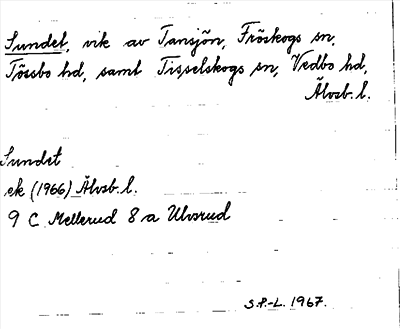 Sundet, vik av Tansjön, Fröskogs sn,
Tössbo hd, samt Tisselskogs sn, Vedbo hd,
Älvsb. l.
Sundet
ek (1966) Älvsb. l.
9 C Mellerud 8 a Ulvsrud
S.P.-L. 1967.